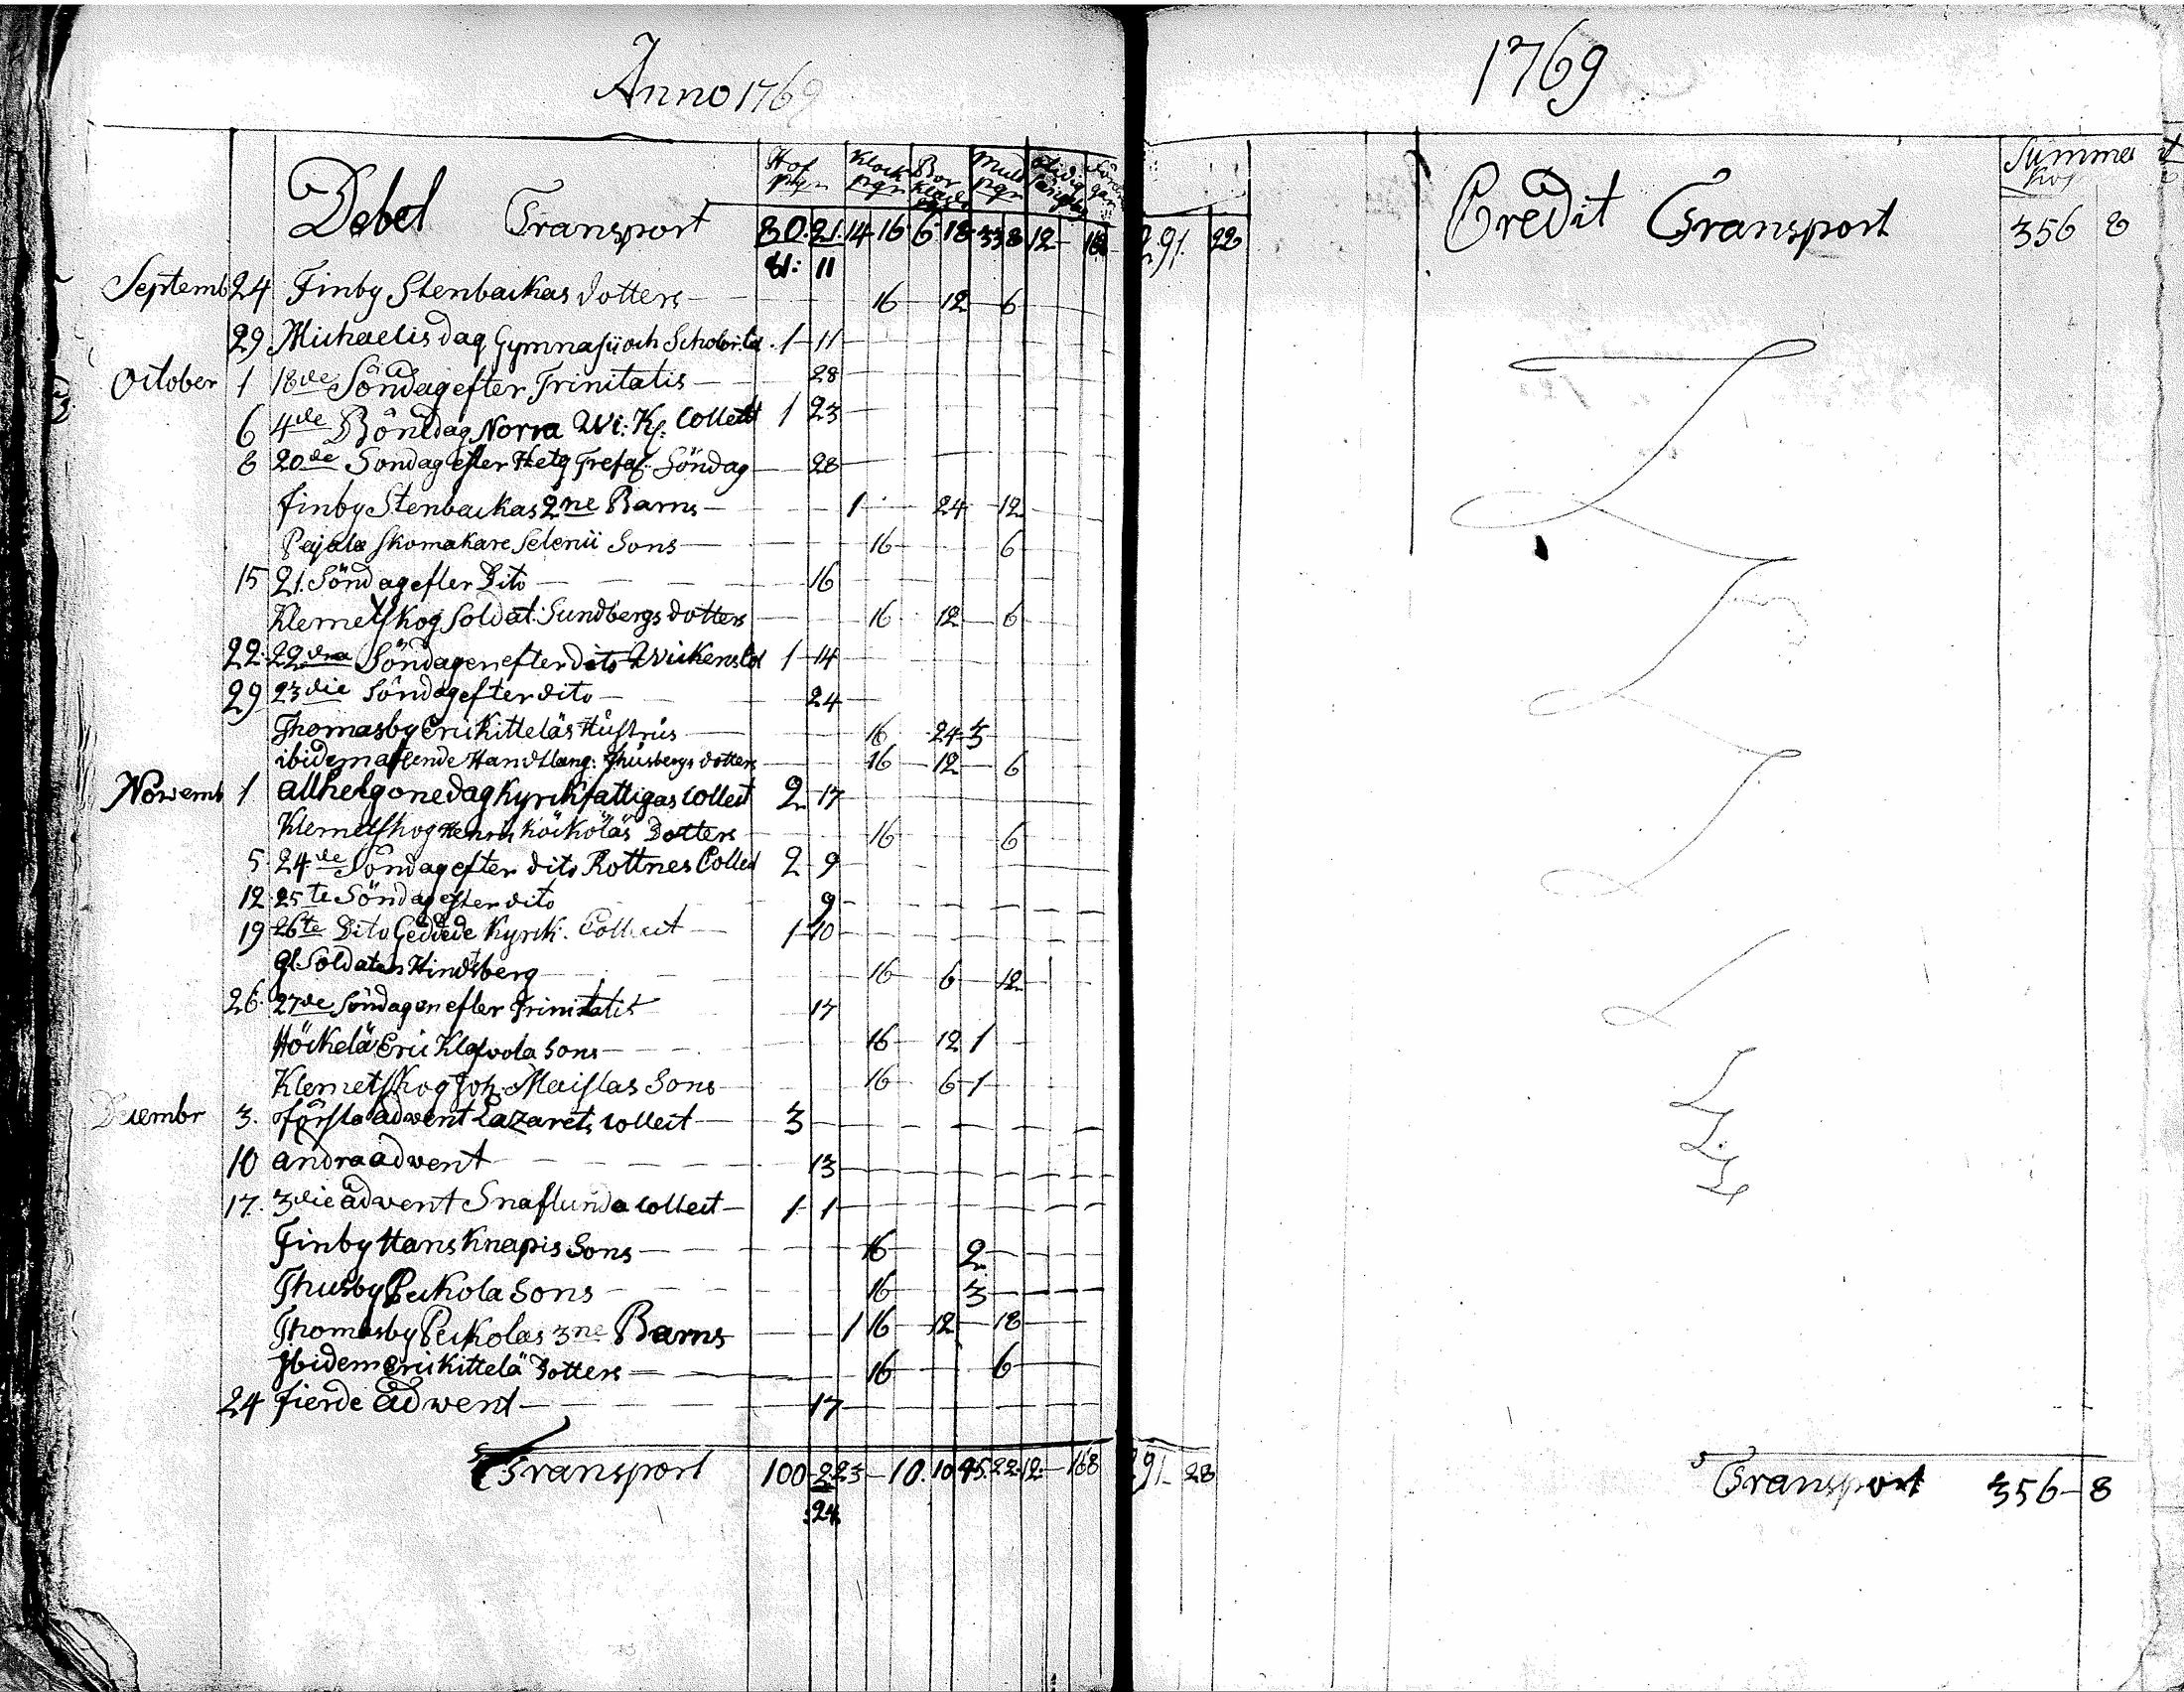 Anno 1769
Debet Transport 80. 21. 14 16 6 18 33 8 12 — 16
81: 11
Septemb 24 Finby Stenbackas dotters — 16 12 6
29 Michaelis dag Gymnasii och Schol 1 11
October 1 18de Söndag efter Trinitatis — 28
6 4de Bönedag Norra Wi: Ky: Collect 1 23
8 20de Söndag efter Helg Trefal: Söndag — 28
Finby Stenbackas 2ne Barns — 1 24 12
Pajala Skomakare Selenii Sons — 16 6
15 21. Söndag efter Dito — 16
Klemetskog Soldat: Sundbergs dotters — 16 12 6
22. 22dra Söndagen efter dito 1 14
29 23die Söndag efter dito — 24
Thomasby Eric Kitteläs Hustrus — 16 24 3
ibidem Handtlang: Thusbergs dotters — 16 12 6
Novemb 1 Allhelgonedag Kyrck fattigas Collect 2 17
Klemetskog Henric Köcköläs Dotters — 16 6
5. 24de Söndag efter dito Rottnes Collect 2 9
12 25te Söndag efter dito 9
19 26te Dito Geddede Kyrck. Collect — 1 10
gl. Soldaten Hindsberg — 16 6 12
26. 27de Söndagen efter Trinitatis — 17
Höckelä Eric Klafvola Sons — 16 12 1
Klemetskog Joh: Maislas Sons — 16 6 1
Decembr 3. första Advent Lazarets Collect — 3
10 andra adwent — 13
17. 3die adwent Snaflunda Collect — 1 1
Finby Hans Knapis Sons — 16 2
Thusby Peckola Sons — 16 3
Thomasby Peckolas 3ne Barns — 1 16 12 18
Ibidem Eric Kittelä Dotters — 16 6
24 fierde Adwent — 17
Transport 100 2 23 — 10. 10 45. 22. 12. — 168
:24.
1769
291. 22 Credit Transport Summa 356 8
291 28 Transport 356 — 8